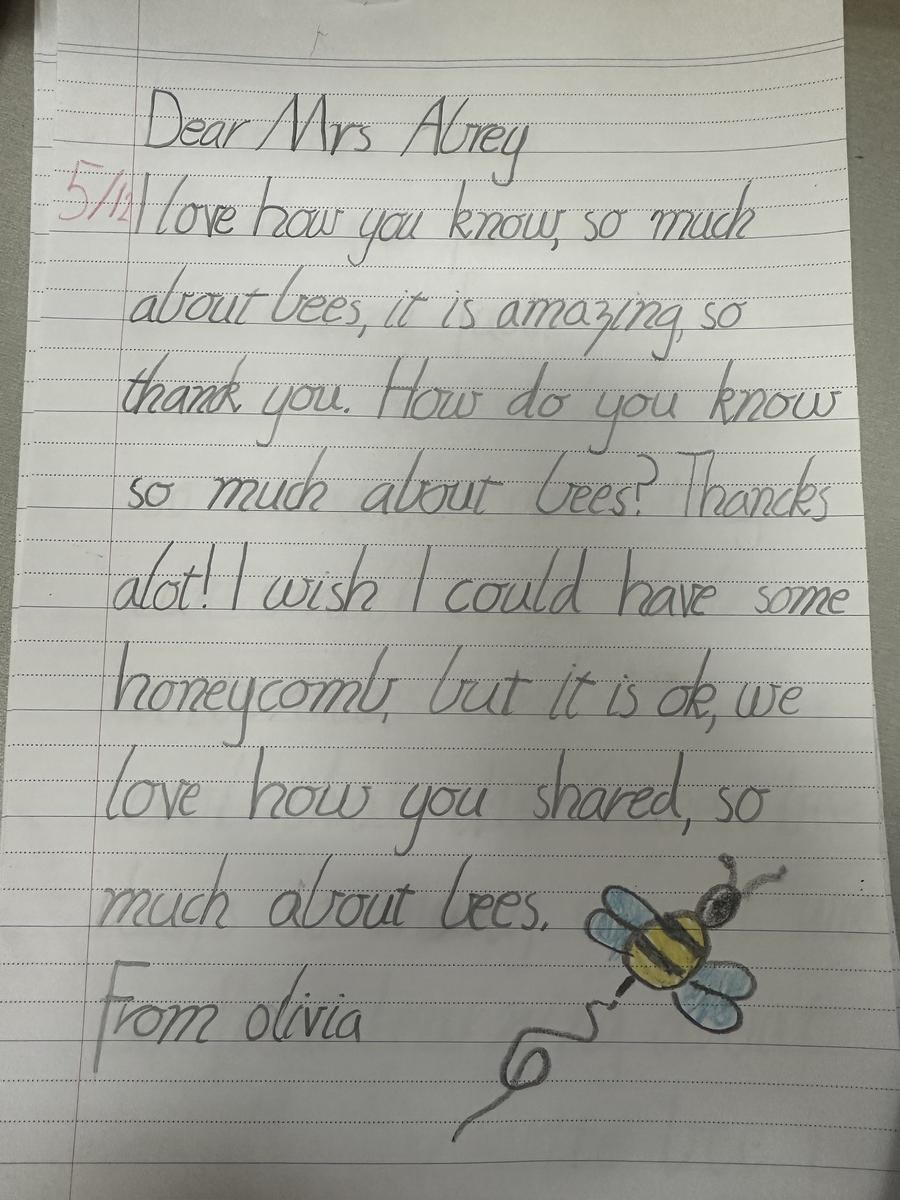 Dear Mrs Abrey
5/12 I love how you know, so much
about bees, it is amazing, so
thank you. How do you know
so much about bees? Thancks
alot! I wish I could have some
honeycomb, but it is ok, we
love how you shared, so
much about bees.
From olivia